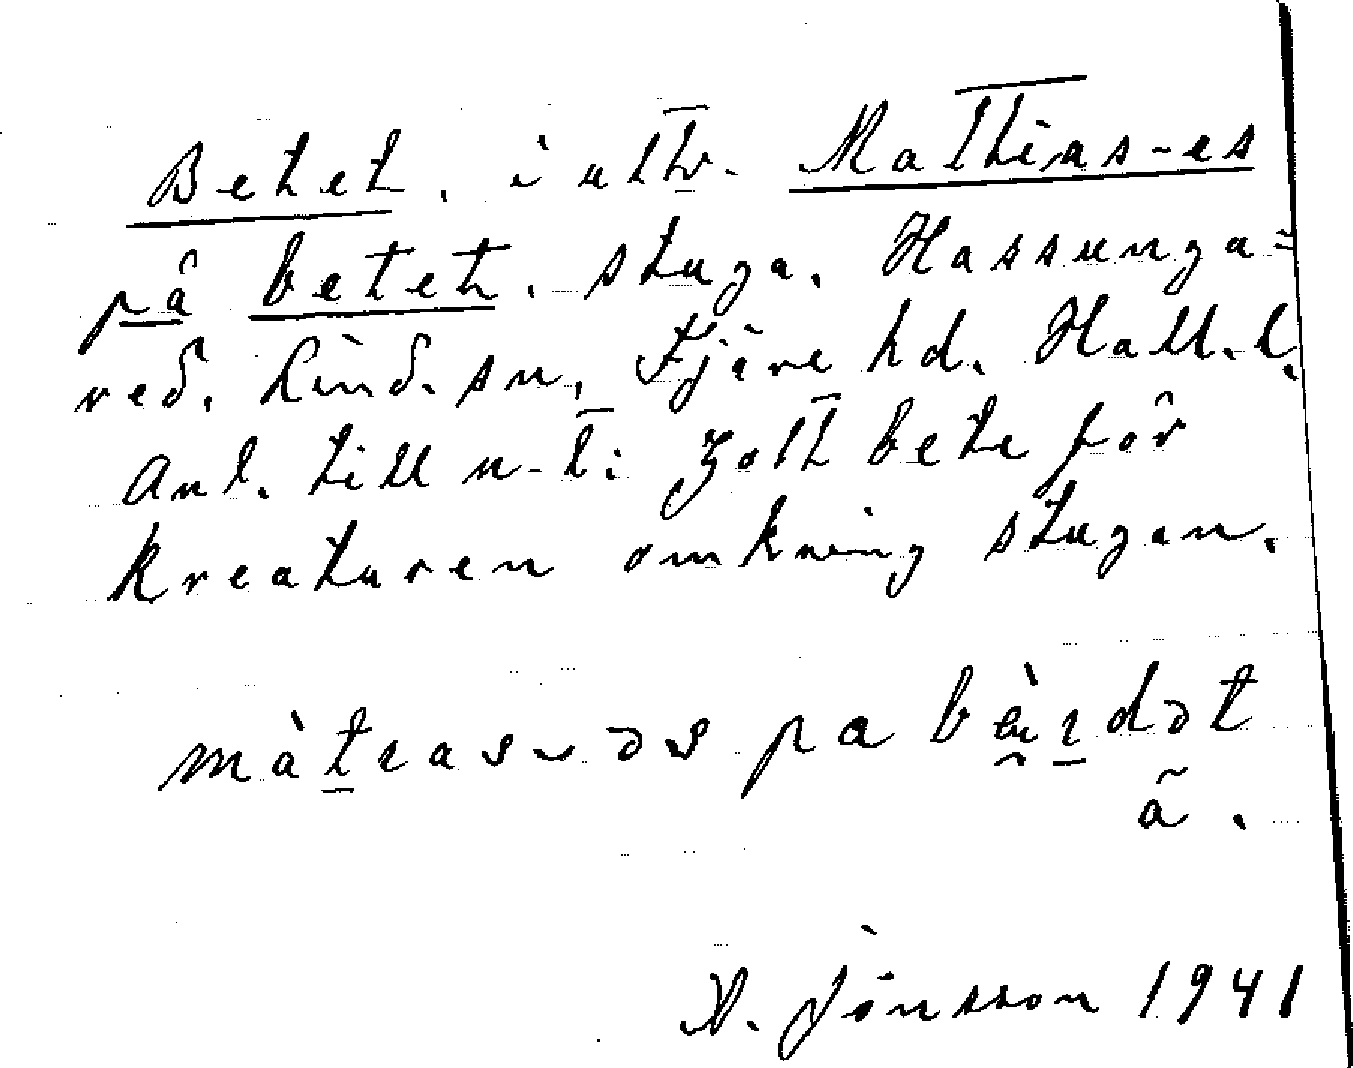 Betet. i uttr. Mathias-es
på betet. stuga. Hassunga=
red. Lind. sn, Fjäre hd. Hall. l.
Anl. till n-t: gott bete för
kreaturen omkring stugan.
pa
A. Jönsson 1941